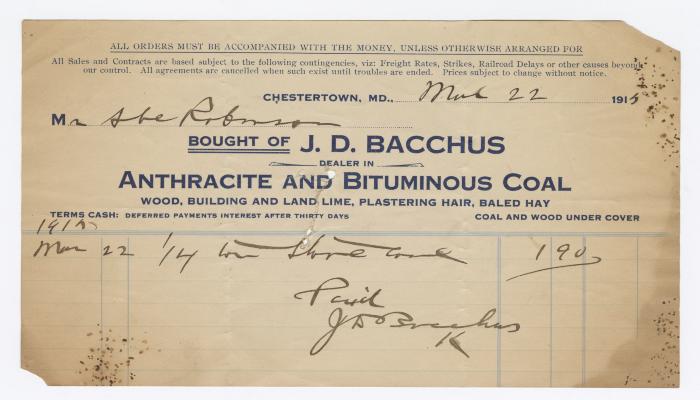 ALL ORDERS MUST BE ACCOMPANIED WITH THE MONEY, UNLESS OTHERWISE ARRANGED FOR
All Sales and Contracts are based subject to the following contingencies, viz: Freight Rates, Strikes, Railroad Delays or other causes beyond
our control. All agreements are cancelled when such exist until troubles are ended. Prices subject to change without notice.
CHESTERTOWN, MD., Mch 22 1915
Mr Abe Robinson
BOUGHT OF J. D. BACCHUS
DEALER IN
ANTHRACITE AND BITUMINOUS COAL
WOOD, BUILDING AND LAND LIME, PLASTERING HAIR, BALED HAY
TERMS CASH: DEFERRED PAYMENTS INTEREST AFTER THIRTY DAYS COAL AND WOOD UNDER COVER
1915
Mar 22 1/4 ton Stove Coal 190
Paid
J D Bacchus
K